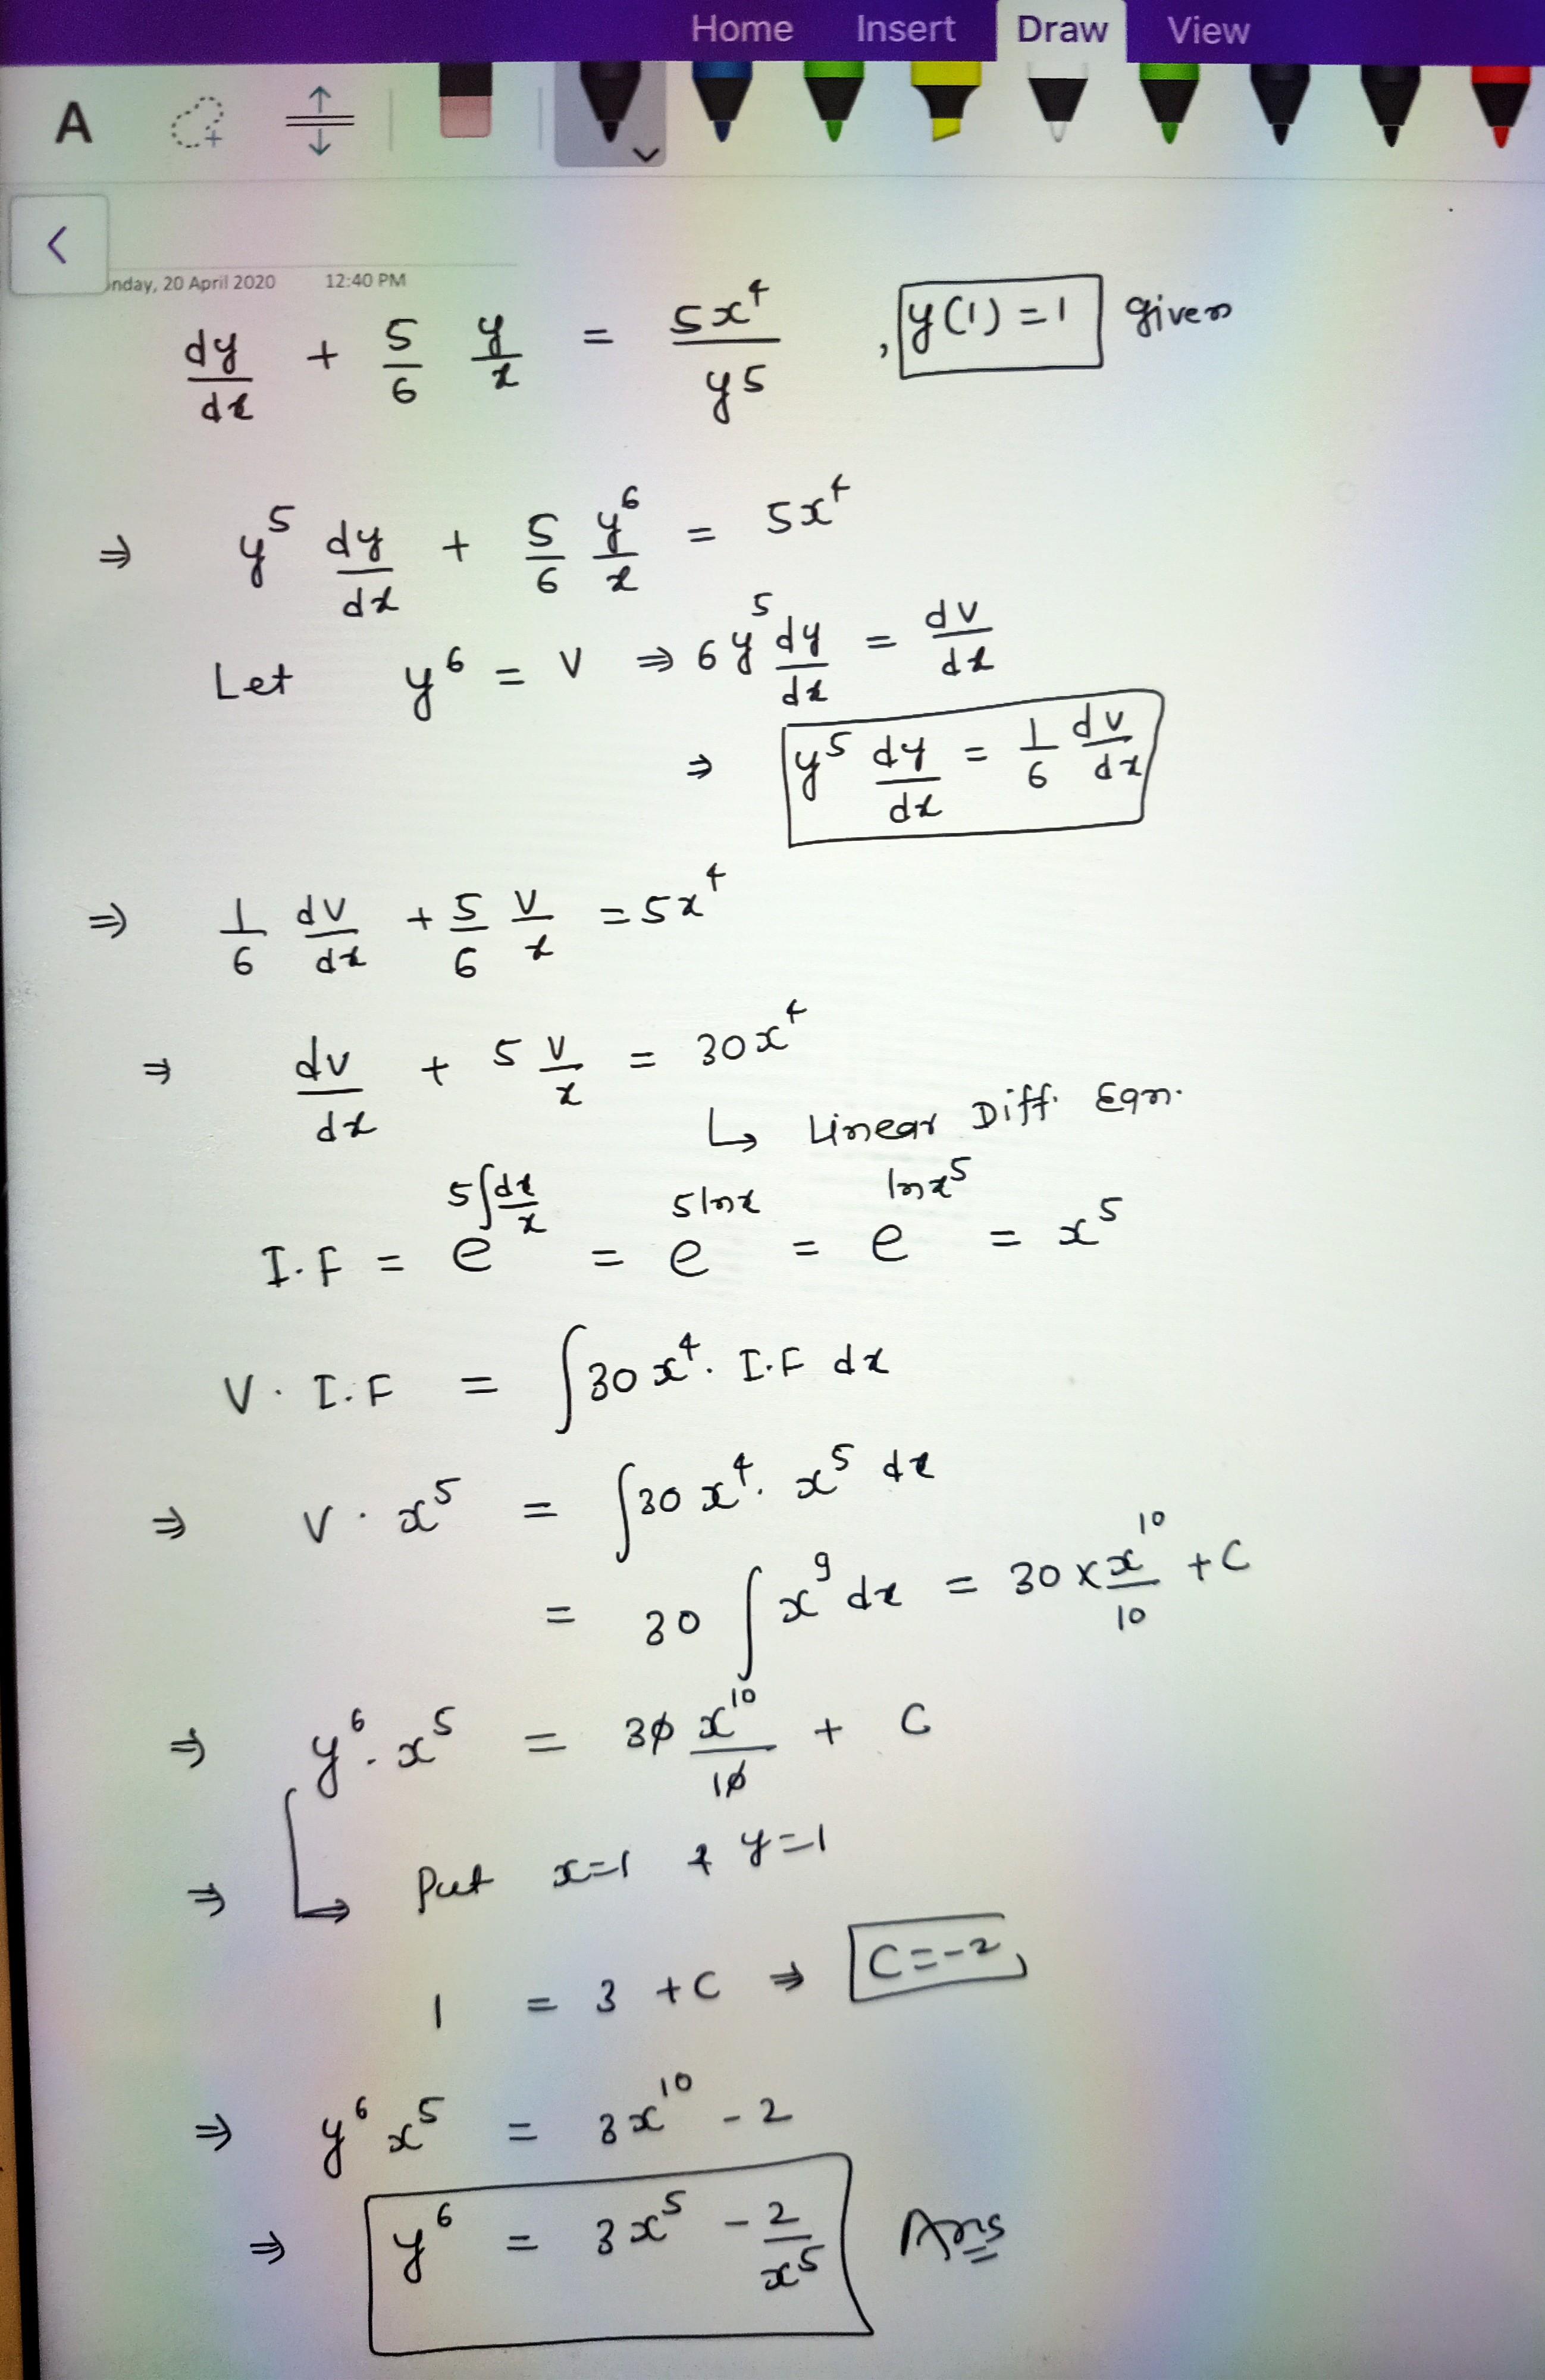 Home Insert Draw View
A
nday, 20 April 2020 12:40 PM
dy/dx + 5/6 y/x = 5x^4/y^5 , y(1) = 1 given
⇒ y^5 dy/dx + 5/6 y^6/x = 5x^4
Let y^6 = v ⇒ 6y^5 dy/dx = dv/dx
⇒ y^5 dy/dx = 1/6 dv/dx
⇒ 1/6 dv/dx + 5/6 v/x = 5x^4
⇒ dv/dx + 5 v/x = 30x^4
↳ Linear Diff. Eqn.
I.F = e^(5∫dx/x) = e^(5lnx) = e^(lnx^5) = x^5
V. I.F = ∫30x^4. I.F dx
⇒ v . x^5 = ∫30 x^4. x^5 dx
= 30 ∫x^9 dx = 30 × x^10/10 + C
⇒ y^6 . x^5 = 30 x^10/10 + C
⇒ ↳ Put x=1 & y=1
1 = 3 + C ⇒ C=-2,
⇒ y^6 x^5 = 3x^10 - 2
⇒ y^6 = 3x^5 - 2/x^5 Ans